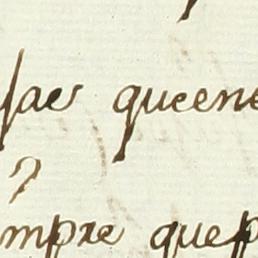 las queene
?
mpre quep